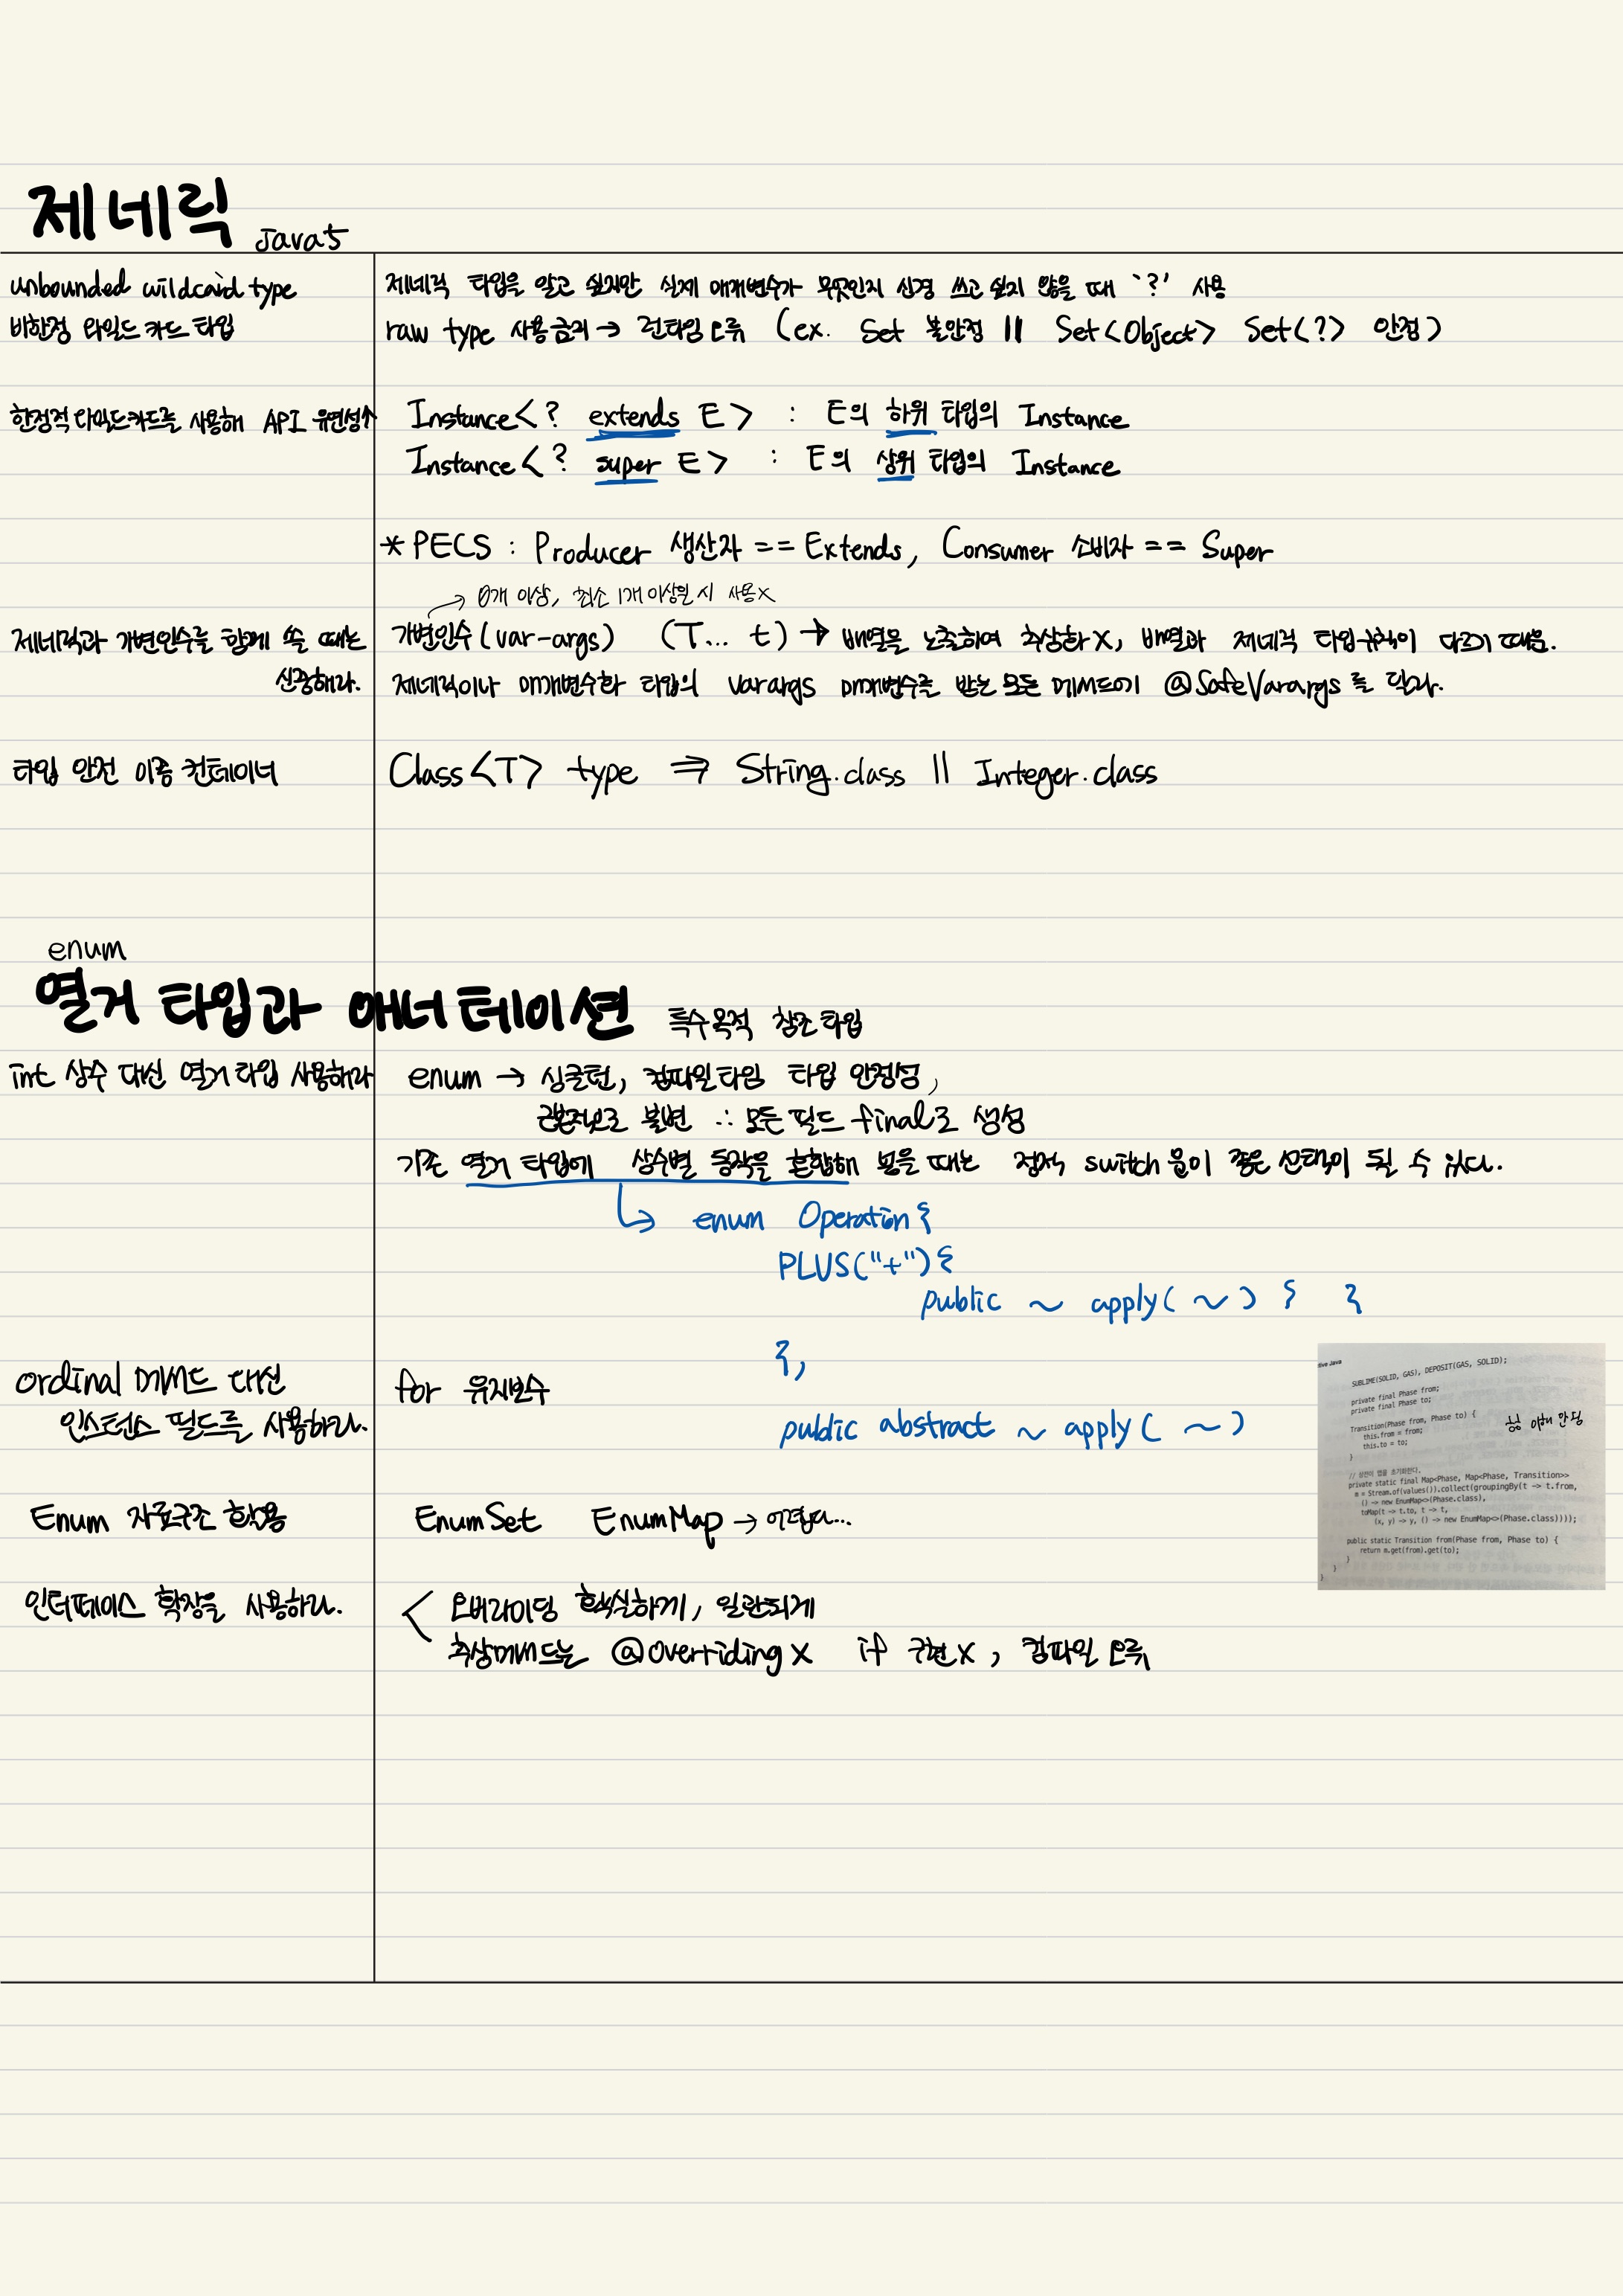 제네릭 Java5
unbounded wildcard type
제네릭 타입을 알고 싶지만 실제 매개변수가 무엇인지 신경 쓰고 싶지 않을 때 '?' 사용
비한정 와일드 카드 타입
raw type 사용금지 → 런타임 오류 (ex. Set 불안정 || Set<Object> Set<?> 안정)
한정적 와일드카드를 사용해 API 유연성↑
Instance<? extends E> : E의 하위 타입의 Instance
Instance<? super E> : E의 상위 타입의 Instance
* PECS : Producer 생산자 == Extends, Consumer 소비자 == Super
→ 0개 이상, 최소 1개 이상일 시 사용x
제네릭과 가변인수를 함께 쓸 때는
신중해라.
가변인수(var-args) (T... t) → 배열을 노출하여 추상화 X, 배열과 제네릭 타입규칙이 다르기 때문.
제네릭이나 매개변수화 타입의 varargs 매개변수를 받는 모든 메서드에 @SafeVarargs를 달라.
타입 안전 이종 컨테이너
Class<T> type ⇒ String.class || Integer.class
enum
열거 타입과 애너테이션 특수목적 참조타입
int 상수 대신 열거 타입 사용해라
enum → 싱글턴, 컴파일타임 타입 안정성,
근본적으로 불변 ∴ 모든 필드 final로 생성
기존 열거 타입에 상수별 동작을 혼합해 넣을 때는 정적 switch 문이 좋은 선택이 될 수 있다.
↳ enum Operation{
PLUS("+"){
public ~ apply( ~ ) { }
},
public abstract ~ apply( ~ )
ordinal 메서드 대신
인스턴스 필드를 사용하라.
for 유지보수
Enum 자료구조 활용
EnumSet EnumMap → 어렵다...
인터페이스 확장을 사용하라.
오버라이딩 확실하게, 일관되게
추상메서드는 @overriding X if 구현X, 컴파일 오류
SUBLIME(SOLID, GAS), DEPOSIT(GAS, SOLID);
private final Phase from;
private final Phase to;
Transition(Phase from, Phase to) {
this.from = from;
this.to = to;
}
이해 안됨
// 상전이 맵을 초기화한다.
private static final Map<Phase, Map<Phase, Transition>>
m = Stream.of(values()).collect(groupingBy(t -> t.from,
() -> new EnumMap<>(Phase.class),
toMap(t -> t.to, t -> t,
(x, y) -> y, () -> new EnumMap<>(Phase.class))));
public static Transition from(Phase from, Phase to) {
return m.get(from).get(to);
}
}
}